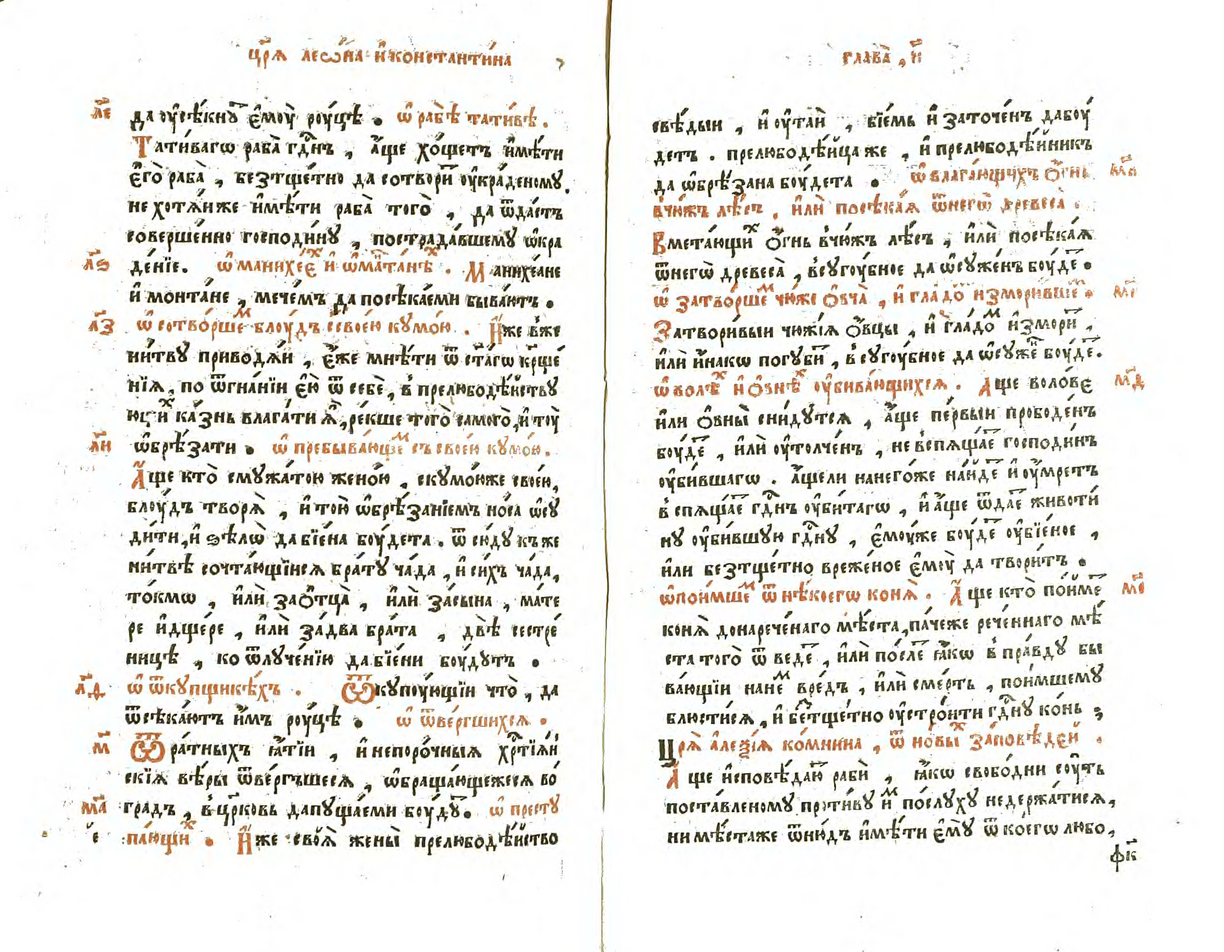 цр҃ѧ леѡ́на и҆ константі́на
л҃е
да ᲂу҆сѣкнꙋ́т є҆мꙋ̀ рꙋ́цѣ . ѡ҆ рабѣ̀ тативѣ .
Тативаго раба̀ гдⷭ҇нь , а҆́ще хо́щетъ и҆мѣ́ти
є҆го̀ раба̀ , безтщетно да сотворитъ ᲂу҆кра́деномꙋ ,
не хотѧ́й же и҆мѣ́ти раба̀ того̀ , да ѿда́стъ
соверше́нно господи́нꙋ , пострада́вшемꙋ ѡ҆кра
л҃ѕ
де́нїе . ѡ҆ манихе́єхъ и҆ ѡ҆ монтанѣхъ . Манихе́ане
и҆ монта́не , мече́мъ да посѣка́еми быва́ютъ .
л҃з
ѡ҆ сотво́ршемъ блꙋ́дъ съ свое́ю кꙋмо́ю . И҆́же в же
нитвꙋ приводѧ́й , є҆́же мнѣти ѿ ст҃а́гѡ кр҃ще
нїѧ , по ѿгна́нїи є҆ю̀ ѿ себѐ , в прелюбодѣ́йствꙋ
ющихъ ка́знь влага́ти ѧ҆̀ , рекше того̀ самого̀ , и҆ тꙋ̀
л҃и
ѡ҆брѣ́зати . ѡ҆ пребыва́ющемъ съ свое́ю кꙋмо́ю .
А҆́ще кто̀ с мꙋжа́тою жено́ю , с кꙋмо́ю же свое́ю ,
блꙋ́дъ творѧ̀ , и҆ то́й ѡ҆брѣ́занїемъ но́са ѡ҆сꙋ
ди́ти , и҆ ѕѣлѡ̀ да бїе́на бꙋ́дета . ѿсю́дꙋ къ же
нитвѣ̀ сочта́ющїисѧ бра́тꙋ ча́да , и҆ си́хъ ча́да ,
то́кмѡ , и҆лѝ за ѻ҆тца̀ , и҆лѝ за сы́на , ма́те
ре и҆ дще́ре , и҆лѝ за два̀ бра́та , двѣ̀ сестре
ницѣ , ко ѿлꙋче́нїю да бїе́ни бꙋ́дꙋтъ .
л҃ѳ
ѡ҆ ѿкꙋпщикѣхъ . Ѿкꙋпꙋ́ющїи что̀ , да
ѿсѣка́ютъ и҆́мъ рꙋ́цѣ . ѡ҆ ѿве́ргшихсѧ .
м҃
Ѿ ра́тныхъ ꙗ҆́тїи , и҆ непоро́чныѧ хрⷭ҇тїѧ́н
скїѧ вѣ́ры ѿве́ргъшесѧ , ѡ҆браща́ющежесѧ во
м҃а
гра́дъ , в цр҃ковь да пꙋща́еми бꙋ́дꙋ . ѡ҆ престꙋ
па́ющихъ . И҆́же своѧ̀ жены̀ прелюбодѣ́йство

глава̀ , и҃
свѣ́дыи , и҆ ᲂу҆таи́ , бїе́мь и҆ заточе́нъ да бꙋ́
детъ . прелюбодѣ́йца же , и҆ прелюбодѣ́йникъ
м҃в
да ѡ҆брѣ́зана бꙋ́дета . ѡ҆ влага́ющихъ ѻ҆́гнь
в чю́жъ лѣ́съ , и҆лѝ посѣка́ѧ ѿ негѡ̀ древеса̀ .
Вмета́ющихъ ѻ҆́гнь в чю́жъ лѣ́съ , и҆лѝ посѣка́ѧ
ѿ негѡ̀ древеса̀ , в сꙋгꙋ́бное да ѡ҆сꙋже́нъ бꙋ́де .
м҃г
ѡ҆ затво́ршемъ чю́жѐ ѻ҆вча̀ , и҆ гла́домъ и҆змори́вшемъ .
Затвори́выи чюжі́ѧ ѻ҆́вцы , и҆ гла́домъ и҆змори́ ,
и҆лѝ и҆на́кѡ погꙋби́ , в сꙋгꙋ́бное да ѡ҆сꙋже бꙋ́де .
м҃д
ѡ҆ волѣхъ и҆ ѻ҆внѣхъ ᲂу҆бива́ющихсѧ . А҆ще воло́вє
и҆лѝ ѻ҆вны̀ сни́дꙋтсѧ , а҆́ще пе́рвыи прободе́нъ
бꙋ́де , и҆лѝ ᲂу҆толче́нъ , не в спѧща́е господи́нъ
ᲂу҆би́вшагѡ . а҆́щели на него́же на́иде и҆ ᲂу҆́мретъ
в спѧща́е гдⷭ҇нъ ᲂу҆би́тагѡ , и҆ а҆́ще ѿда́е живо́ти
нꙋ ᲂу҆би́вшꙋю гдⷭ҇нꙋ , є҆мꙋ́же бꙋ́де ᲂу҆бїе́ное ,
и҆лѝ безтще́тно врежено́е є҆мꙋ̀ да твори́тъ .
м҃е
ѡ҆ пои́мшемъ ѿ нѣ́коегѡ конѧ̀ . А҆́ще кто̀ по́име
конѧ̀ до нарече́наго мѣ́ста , паче́же рече́ннаго мѣ́
ста того̀ ѿведе , и҆лѝ по́слѣ ꙗ҆́кѡ в пра́вдꙋ бы
ва́ющїи на не́мъ вре́дъ , и҆лѝ сме́рть , пои́мшемꙋ
блюсти́сѧ , и҆ бестще́тно ᲂу҆стро́ити гдⷭ҇нꙋ ко́нь ;
Цр҃ѧ̀ а҆леѯі́ѧ комни́на , ѿ но́выхъ за́повѣдей .
А҆ще и҆сповѣ́даю рабѝ , ꙗ҆́кѡ свобо́дни сꙋ́ть
поста́вленомꙋ проти́вꙋ и҆́мъ по́слꙋхꙋ недержа́тисѧ ,
ни мѣ́стаже ѿню́дъ и҆мѣ́ти є҆мꙋ̀ ѿ коегѡ лю́бо ,
фк҃